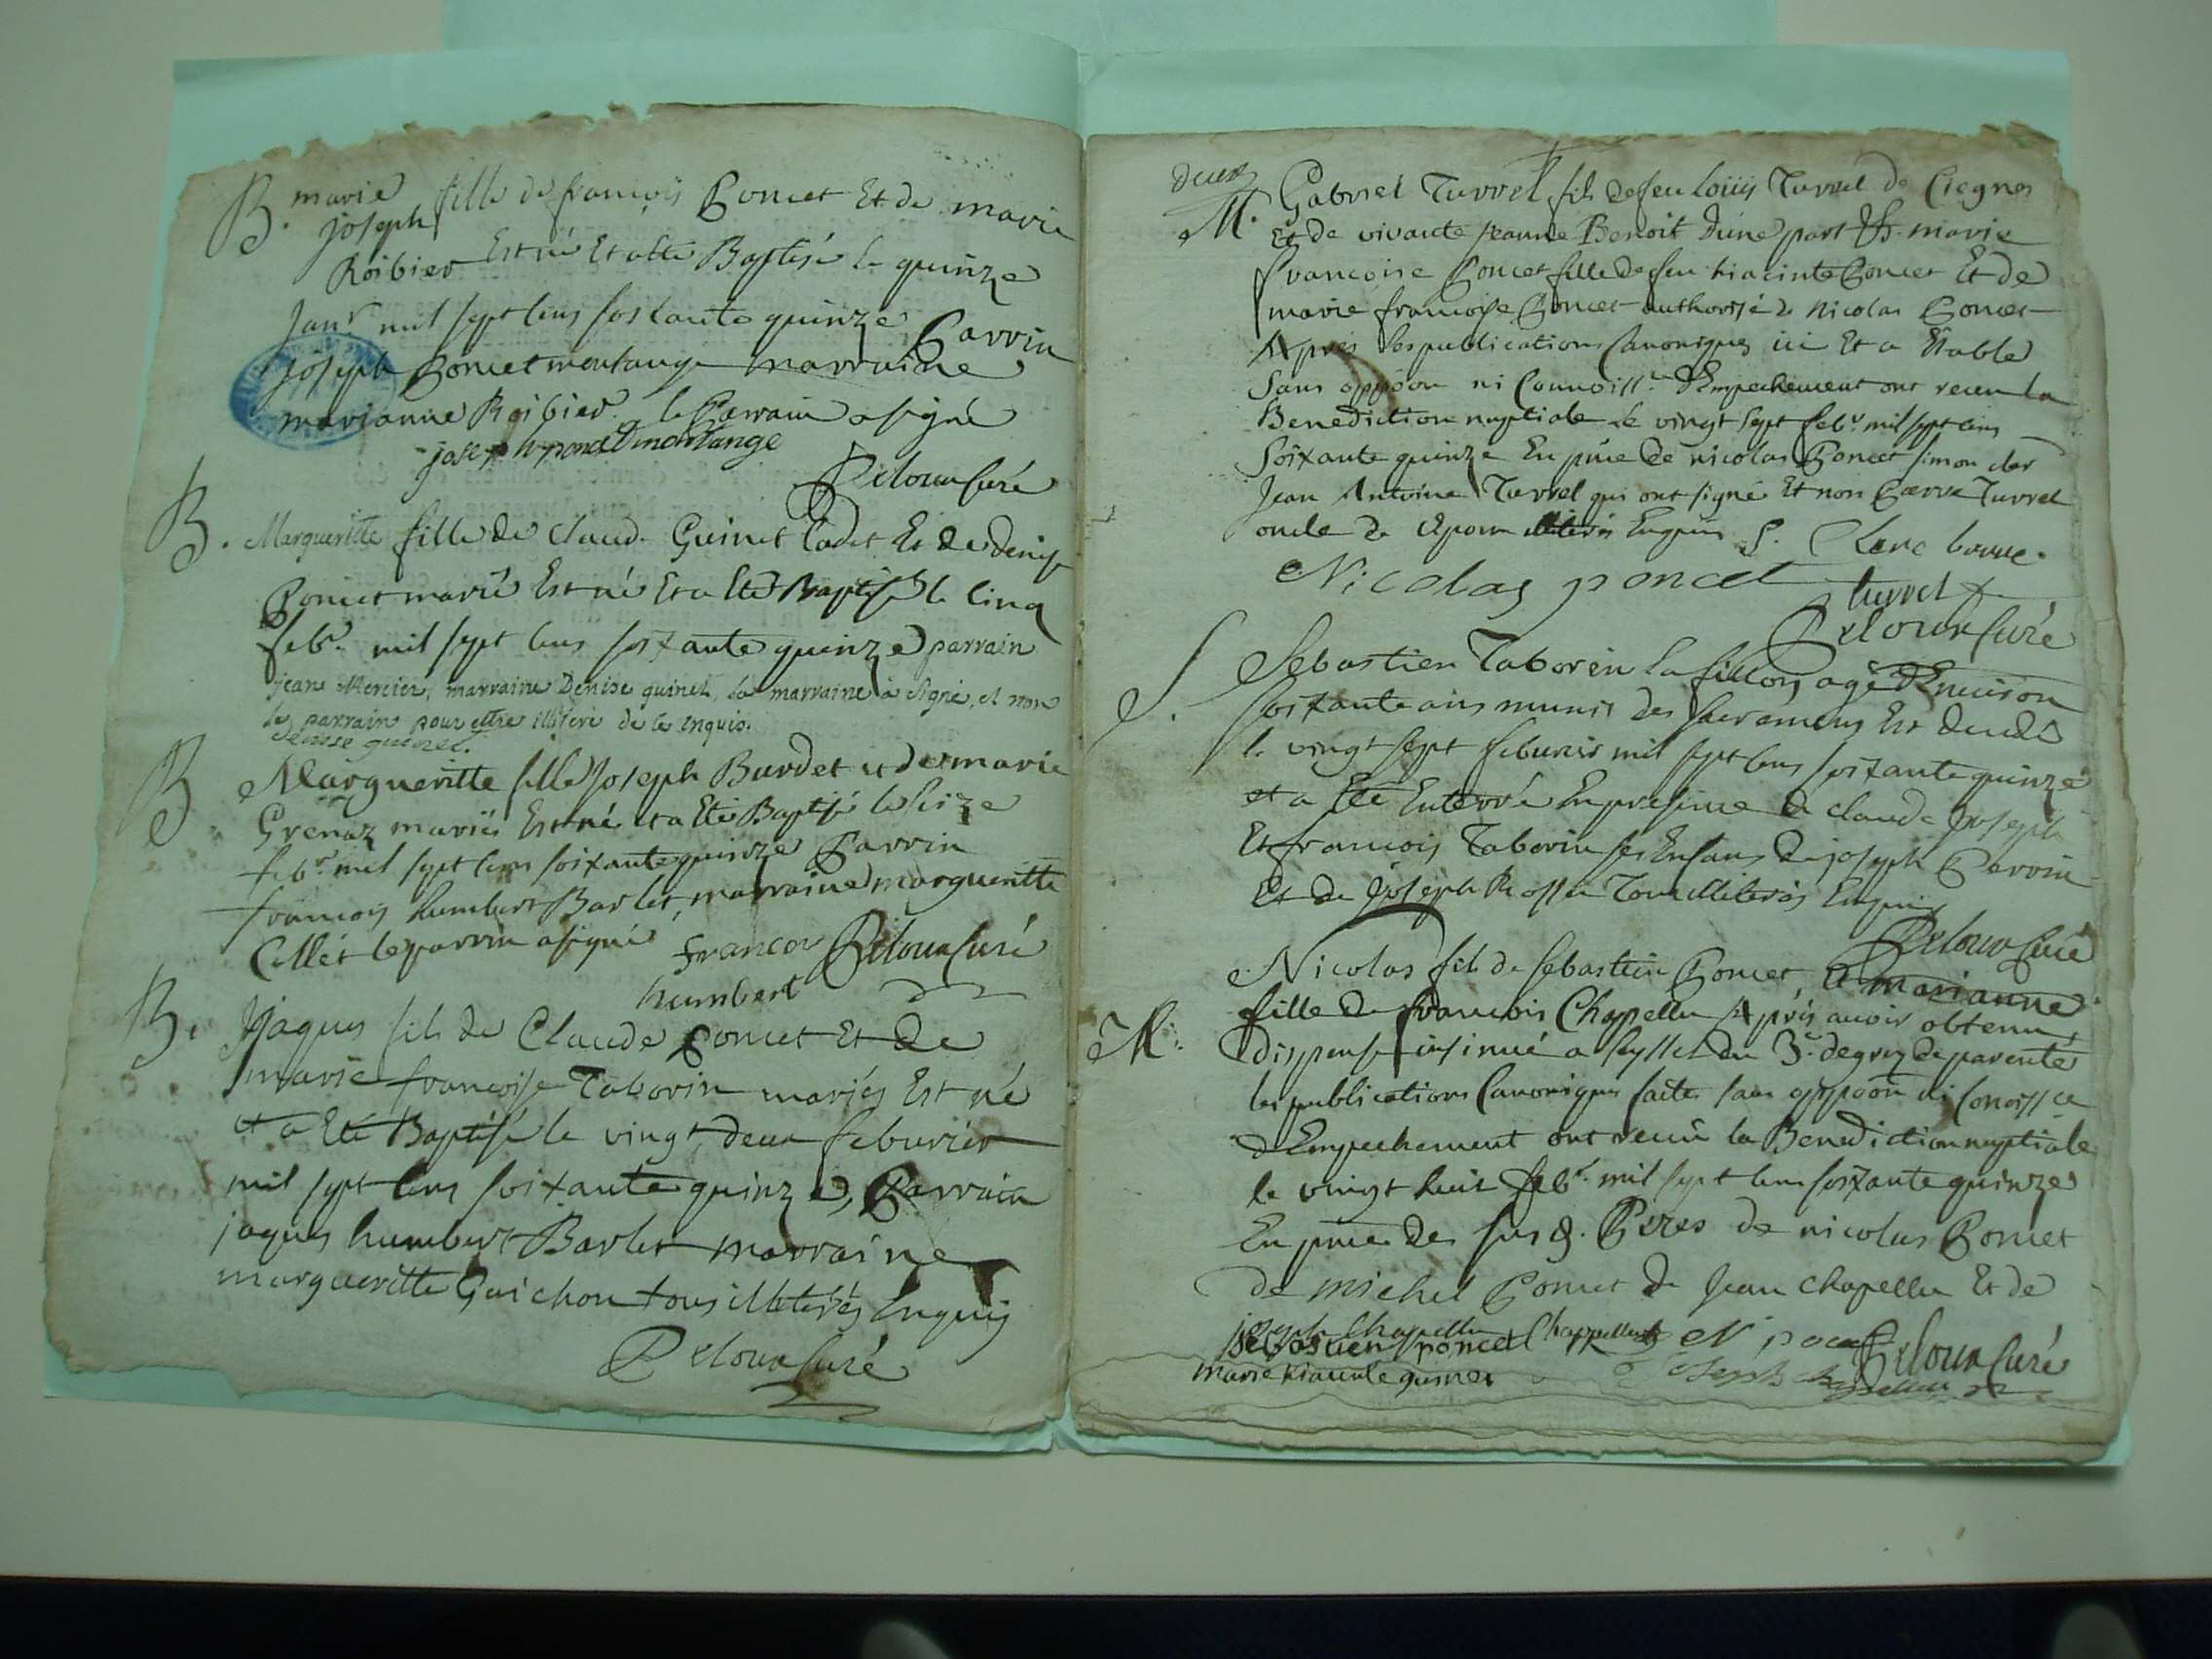 B. marie fille de francois Poncet Et de marie
joseph
Roibier Est né Et a été Baptisé le quinze
Janr. mil sept cens soixante quinze Parrin
joseph Poncet montange marraine
marianne Roibier le Parrain a signé
joseph poncet montange
Deloux Curé
B. Margueritte fille de claude Guinet Cadet Et de denise
Poncet marié Est né Et a Eté Baptisé le Cinq
febr. mil sept cens soixante quinze parrain
jean Mercier, marraine Denise guinet, la marraine à signé, et non
le parrain pour estre illiteré de ce enquis.
denise guinet.
B. Margueritte fille Joseph Burdet et de marie
Grenaz mariés Est né et a Eté Baptisé le seize
febr. mil sept cens soixante quinze Parrin
francois humbert Barlet, marraine margueritte
Collet le parrin a signé francoi Deloux Curé
humbert
B. Jaques fils de Claude Poncet Et de
marie francoise Taborin mariés Est né
et a Eté Baptisé le vingt deux feburier
mil sept cens soixante quinze, Parrain
jaques humbert Barlet marraine
margueritte Guichon tous illiterés Enquis
Deloux Curé
deux
M. Gabriel Turrel fils de feu Louis Turrel de
Et de vivante jeanne Benoit d'une part Et marie
francoise Poncet fille de feu hiacinte Poncet Et de
marie francoise Poncet authorisé de Nicolas Poncet
Apres les publications Canoniques ici Et a
Sans oppoon ni Connoiss.ce d'Empechement ont receu la
Benediction nuptiale le vingt sept febr. mil sept cens
soixante quinze En pnce de nicolas Poncet simon
Jean Antoine Turrel qui ont signé Et non Pierre Turrel
oncle de Epoux illiterés Enquis S. Clerc
Nicolas poncet
turrel
Deloux Curé
S. Sebastien Taborin la fillon agé d'Environ
soixante ans munis des sacremens Est decedé
le vingt sept feburier mil sept cens soixante quinze
et a Eté Enterré En presence de claude joseph
Et francois Taborin ses Enfans de joseph Perrin
Et de joseph Rossu Tous illiterés Enquis
Deloux Curé
M. Nicolas fils de sebastien Poncet, Et marianne
fille de francois Chapellu Après avoir obtenu
dispense insinué a seyssel du 3e. degrez de parenté
les publications Canoniques faites sans oppoon ni Conoissce
d'Empechement ont receu la Benediction nuptiale
le vingt huit febr. mil sept cens soixante quinze
En pnce des susd. Peres de nicolas Poncet
de michel Poncet de Jean chapellu Et de
joseph Chapellu Chappellu N poncet
sebastien poncet Deloux Curé
marie hiacinte guinet joseph chapellu